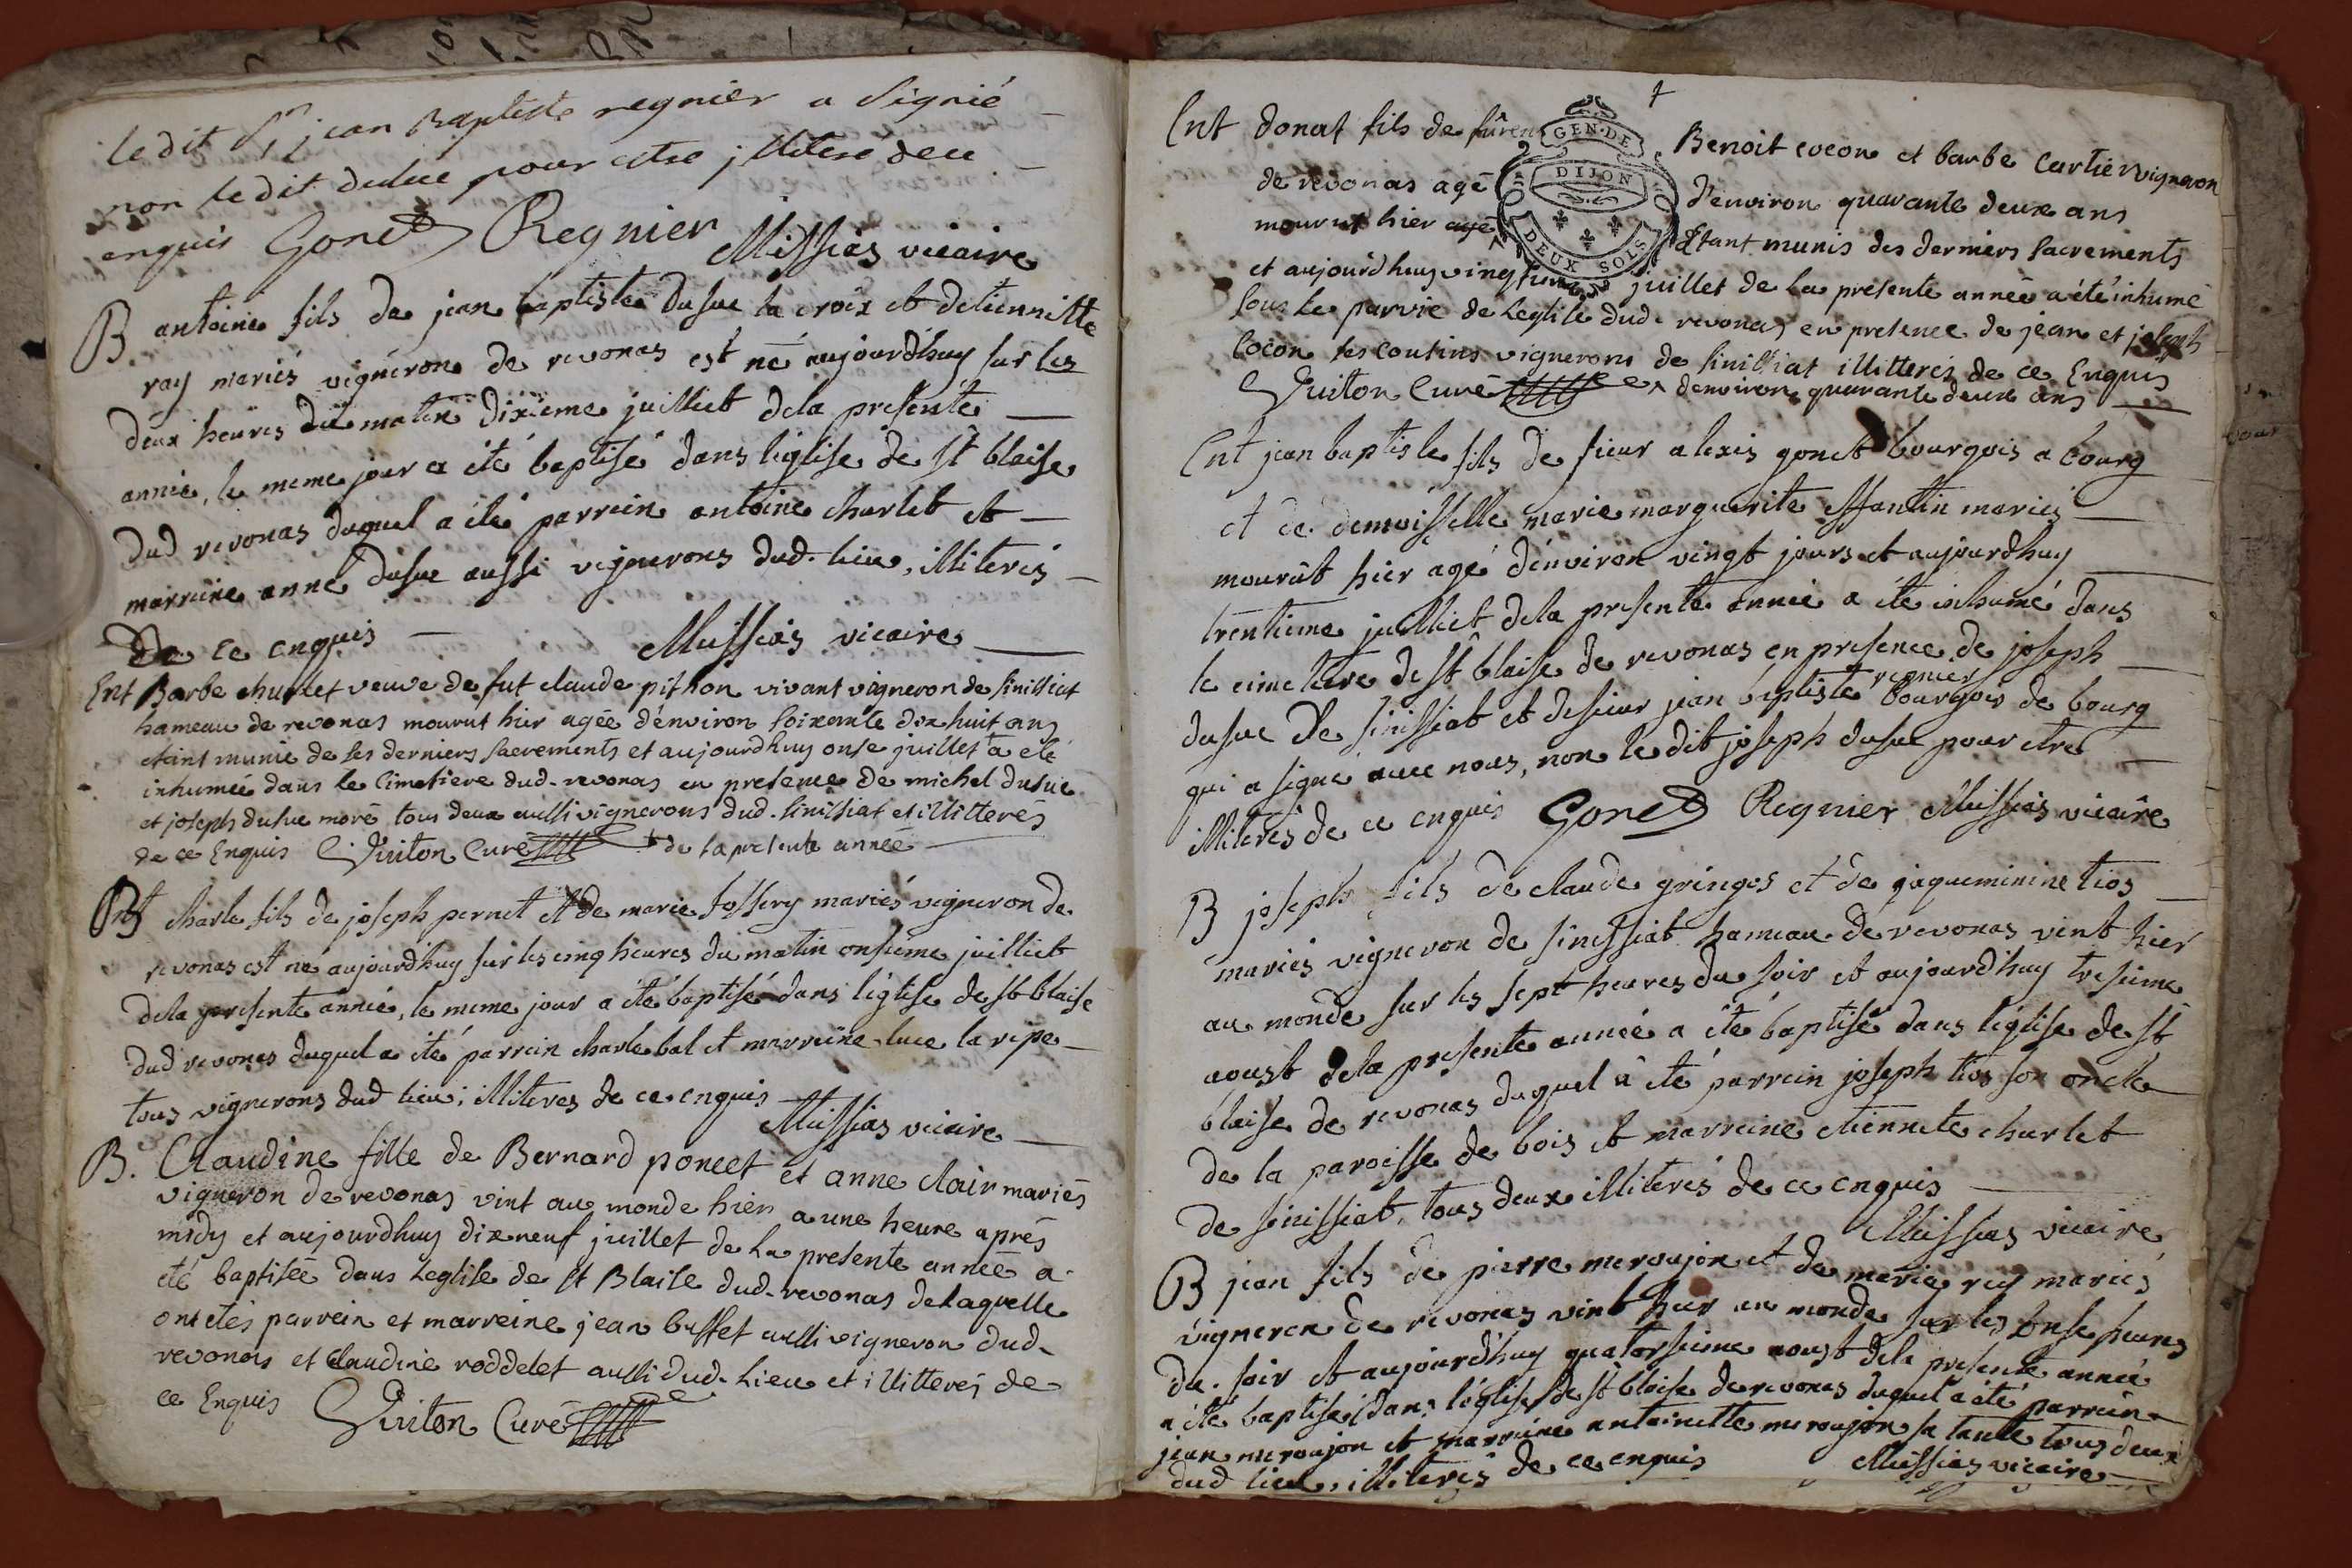 le dit Sr jean Baptiste regnier a signié
non le dit dusuc pour estre jlliteré de ce
enquis Gonet Regnier Missias vicaire
B antoine fils de jean baptiste dusuc la croix et detiennitte
ray mariés vigneron de revonas est né aujourdhuy sur les
deux heures du matin dixieme juilliet dela presente
année, le meme jour a été baptisé dans l'église de st blaise
dud revonas duquel a été parrein antoine charlet et
marreine anne dusuc aussi vignerons dud. lieu, illiterés
de ce enquis Missias vicaire
Ent Barbe charlet veuve de fut claude pithon vivant vigneron de sinissiat
hameau de revonas mourut hier agée d'environ soixante dix huit ans
etant munie de ses derniers sacrements et aujourdhuy onse juillet + a eté
inhumée dans le Cimetiere dud. revonas en presence de michel dusuc
et joseph dusuc moré tous deux aussi vignerons dud. sinissiat et illitterés
de ce Enquis Guiton Curé + de la presente année
Bt charle fils de joseph pernet et de marie fossery mariés vigneron de
revonas est né aujourdhuy sur les cinq heures du matin onsieme juilliet
dela presente année, le meme jour a été baptisé dans l'église de st blaise
dud revonas duquel a été parrein charle bal et marreine luce la ripe
tous vignerons dud lieu, illiteres de ce enquis
Missias vicaire
B. Claudine fille de Bernard poncet et anne clair mariés
vigneron de revonas vint au monde hier a une heure aprés
midy et aujourdhuy dix neuf juillet de la presente année a
eté baptisée dans leglise de st Blaise dud. revonas delaquelle
ont etés parrein et marreine jean buffet aussi vigneron dud.
revonas et Claudine roddelet aussi dud. lieu et illitterés de
ce Enquis Guiton Curé
Ent donat fils de fû Benoit cocon et barbe Cartier vigneron
de revonas agé d'environ quarante deux ans
mourut hier agé Etant munis des derniers sacrements
et aujourdhuy vingt juillet de la presente année a été inhumé
sous le parvie de leglise dud. revonas en presence de jean et joseph
Cocon ses cousins vignerons de sinissiat illitterés de ce Enquis
Guiton Curé x denviron quarante deux ans
GEN. DE
DIJON
DEUX SOLS
Ent jean baptiste fils de sieur alexis gonet bourgois a bourg
et de demoisselle marie marguerite mariés
mourût hier agé d'environ vingt jours et aujourdhuy
trentieme juilliet dela presente année a été inhumé dans
le cimetiere de st blaise de revonas en presence de joseph
dusuc de sinissiat et desieur jean baptiste regnier bourgois de bourg
qui a signé avec nous, non le dit joseph dusuc pour etre
illiterés de ce enquis Gonet Regnier Missias vicaire
B joseph fils de claude gringos et de jaqueminine tios
mariés vigneron de sinissiat hameau de revonas vint hier
au monde sur les sept heures du soir et aujourdhuy tresieme
aoust dela presente année a été baptisé dans l'église de st
blaise de revonas duquel a été parrein joseph tios son oncle
de la paroisse de bois et marreine etiennete charlet
de sinissiat, tous deux illiterés de ce enquis
Missias vicaire
B jean fils de pierre meroujon et de marie rey mariés
vigneron de revonas vint hier au monde sur les onse heures
du soir et aujourdhuy quatorsieme aoust dela presente année
a été baptisé dans l'église de st blaise de revonas duquel a été parrein
jean meroujon et marreine antoinette meroujon sa tante tous deux
dud lieu, illiterés de ce enquis Missias vicaire